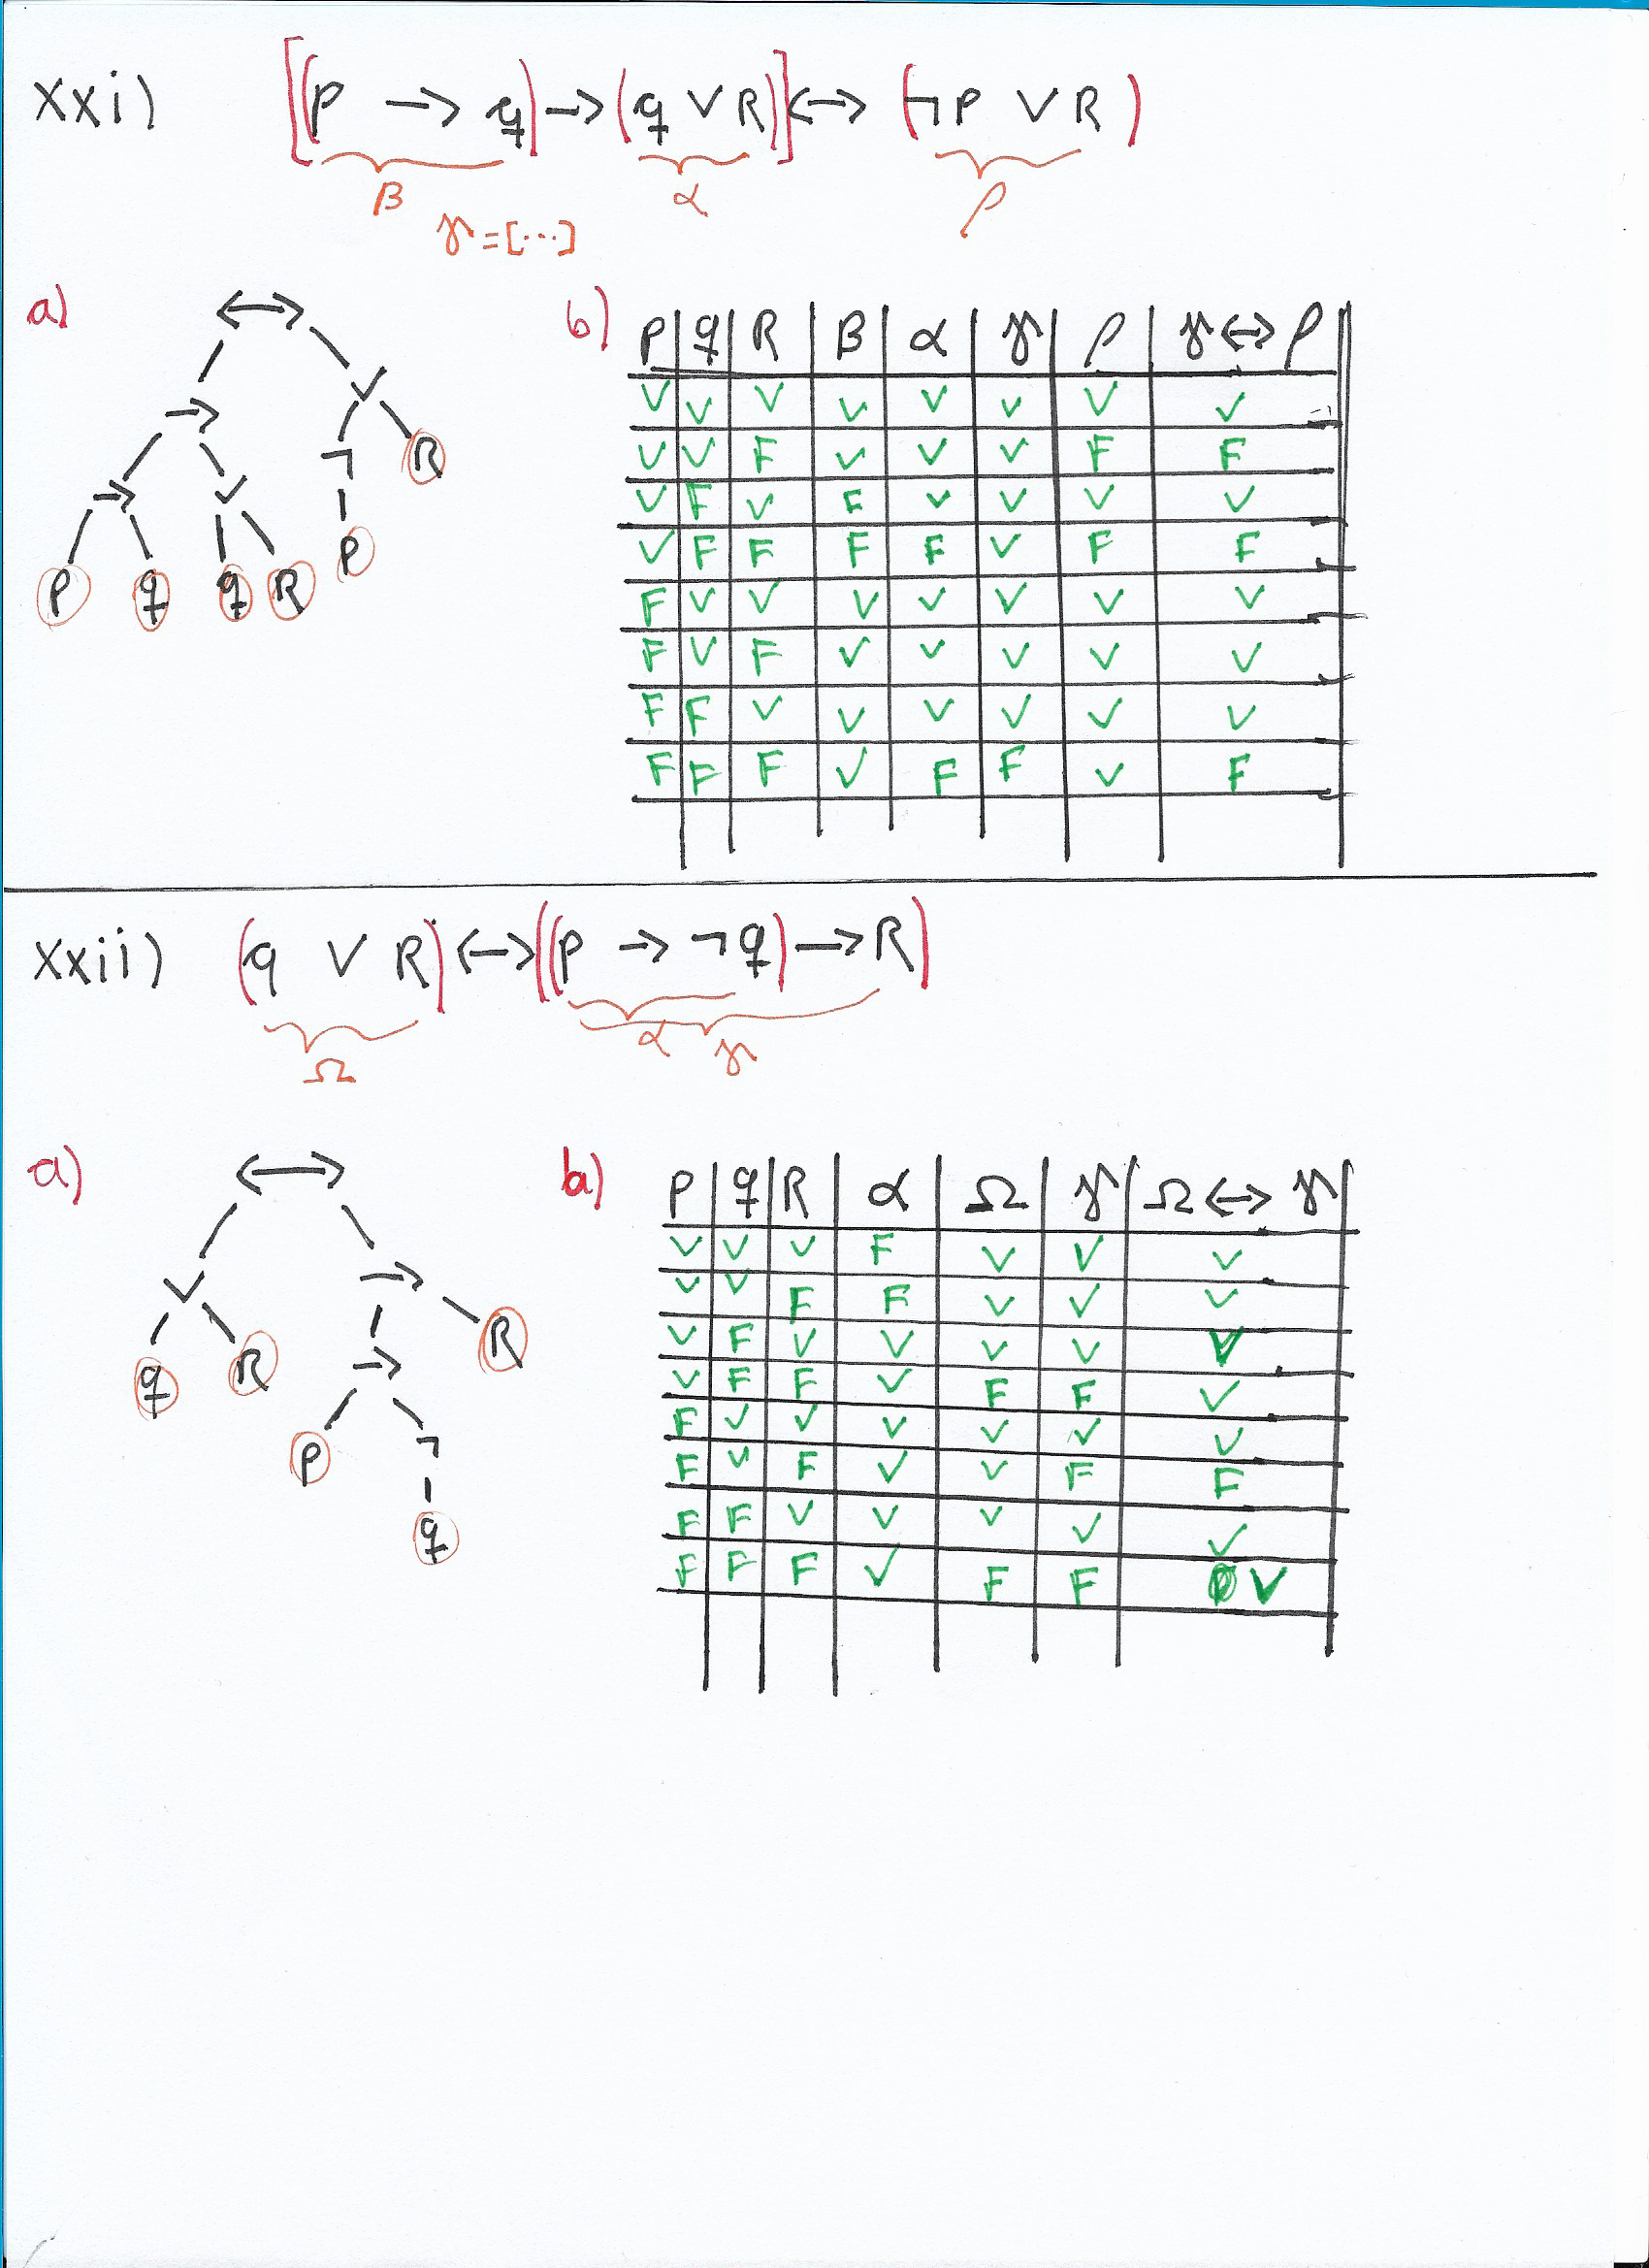 xxi) [(P → q) → (q ∨ R)] ↔ (¬P ∨ R)
β α ρ
γ = [...]
a) b)
↔
→ ∨
→ ∨ ¬ R
P q q R P
P q R β α γ ρ γ ↔ ρ
V V V V V V V V
V V F V V V F F
V F V F V V V V
V F F F F V F F
F V V V V V V V
F V F V V V V V
F F V V V V V V
F F F V F F V F
xxii) (q ∨ R) ↔ ((P → ¬q) → R)
Ω α γ
a) b)
↔
∨ →
q R → R
P ¬
q
P q R α Ω γ Ω ↔ γ
V V V F V V V
V V F F V V V
V F V V V V V
V F F V F F V
F V V V V V V
F V F V V F F
F F V V V V V
F F F V F F V